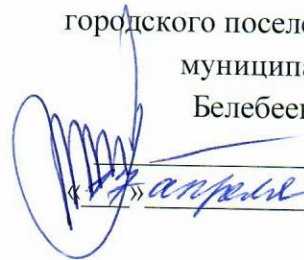 городского посел
муниципа
Белебее
« » апреля